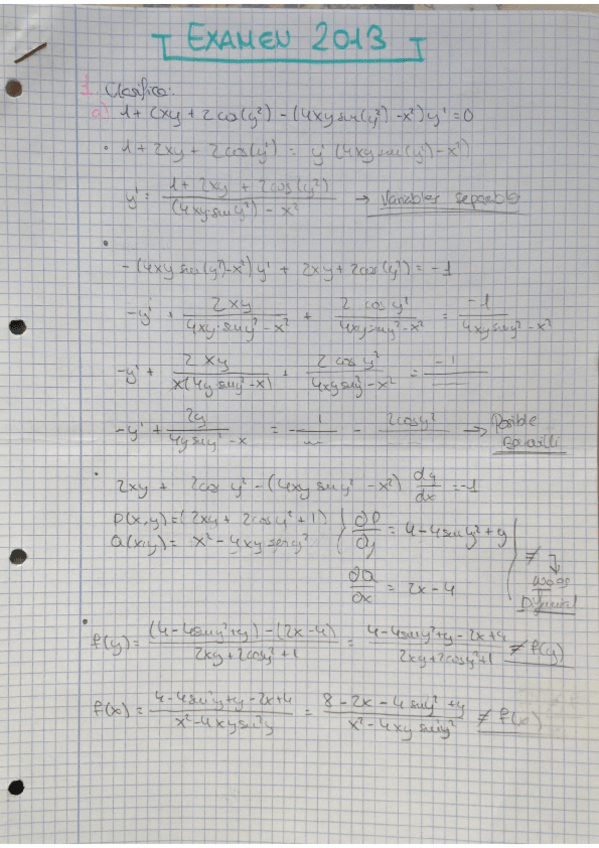 EXAMEN 2013
1. Clasifica:
a) 1+2xy+2cos(y²) - (4xy sin(y²) - x²) y' = 0
• 1+2xy + 2cos(y²) = y' (4xy sin(y²) - x²)
y' = (1+2xy + 2cos(y²)) / ((4xy·sin y²) - x²) → Variables separable
• -(4xy sin(y²)-x²) y' + 2xy + 2cos(y²) = -1
-y' + 2xy / (4xy·sin y² - x²) + 2 cos y² / (4xy sin y² - x²) = -1 / (4xy sin y² - x²)
-y' + 2xy / (x(4y sin y² - x)) + 2 cos y² / (4xy sin y² - x²) = -1 / —
-y' + 2y / (4y sin y² - x) = - 1 / — - 2cos y² / — → Posible
• 2xy + 2cos y² - (4xy sin y² - x²) dy/dx = -1
P(x,y) = (2xy + 2cos y² + 1) ∂P/∂y = 4 - 4sin y² + y
Q(x,y) = x² - 4xy sen y² ≠
∂Q/∂x = 2x - 4
• f(y) = ((4-4sin y²+y) - (2x-4)) / (2xy+2cos y²+1) = (4-4sin y²+y-2x+4) / (2xy+2cos y²+1) ≠ f(y)
f(x) = (4-4sin y²+y-2x+4) / (x²-4xy sin² y) = (8-2x-4sin y²+y) / (x²-4xy sin y²) ≠ f(x)